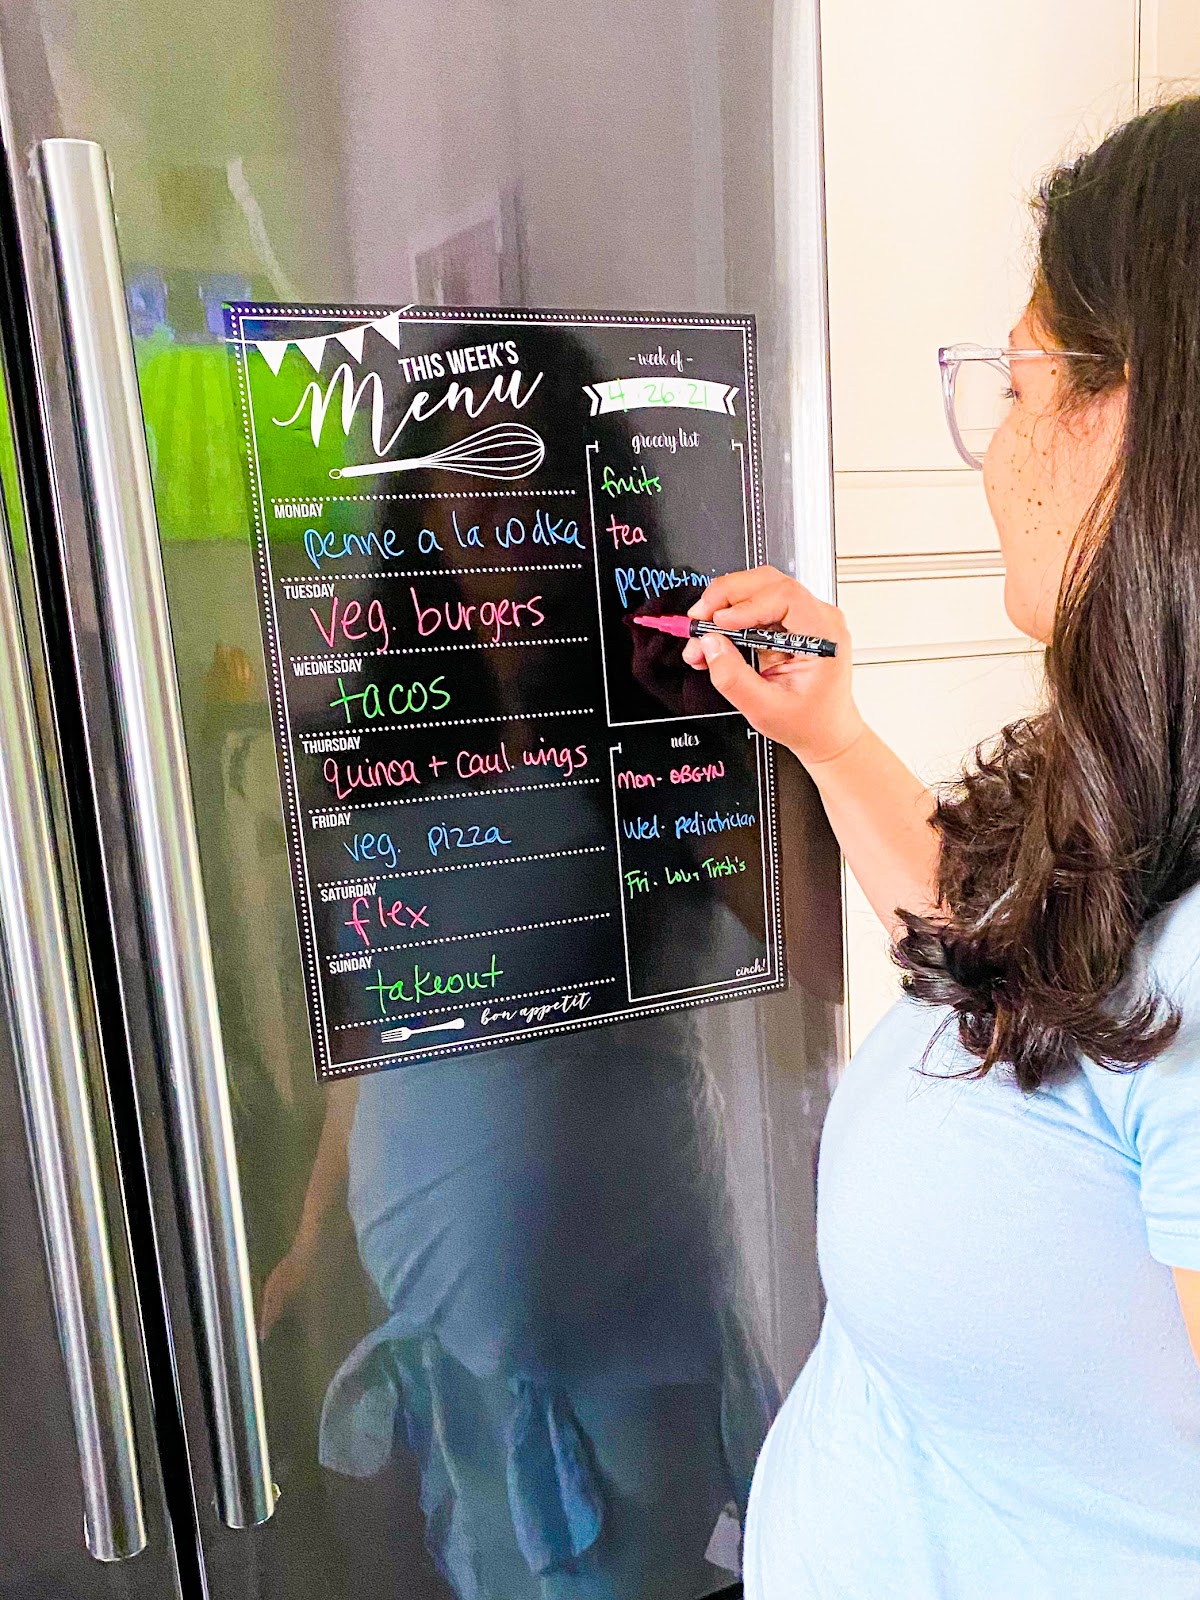 THIS WEEK'S
Menu
- week of -
4 · 26 · 21
MONDAY
penne a la vodka
TUESDAY
Veg. burgers
WEDNESDAY
tacos
THURSDAY
Quinoa + caul. wings
FRIDAY
veg. pizza
SATURDAY
flex
SUNDAY
takeout
bon appetit
grocery list
fruits
tea
peppers +
notes
Mon - OBGYN
Wed. pediatrician
Fri. Trish's
cinch!